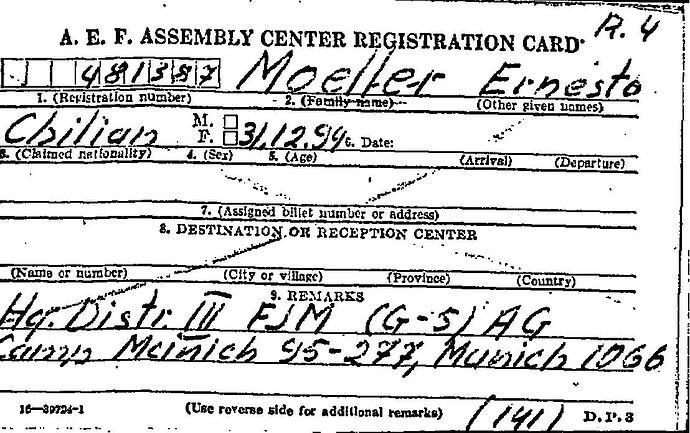 R. 4
A. E. F. ASSEMBLY CENTER REGISTRATION CARD
481387 Moeller Ernesto
1. (Registration number) 2. (Family name) (Other given names)
Chilian M. F. 31.12.94 6. Date:
3. (Claimed nationality) 4. (Sex) 5. (Age) (Arrival) (Departure)
7. (Assigned billet number or address)
8. DESTINATION OR RECEPTION CENTER
(Name or number) (City or village) (Province) (Country)
9. REMARKS
Hq. Distr. III (G-5) AG
Camp 95-277, Munich 1066
16—39724-1 (Use reverse side for additional remarks) (141) D.P.3